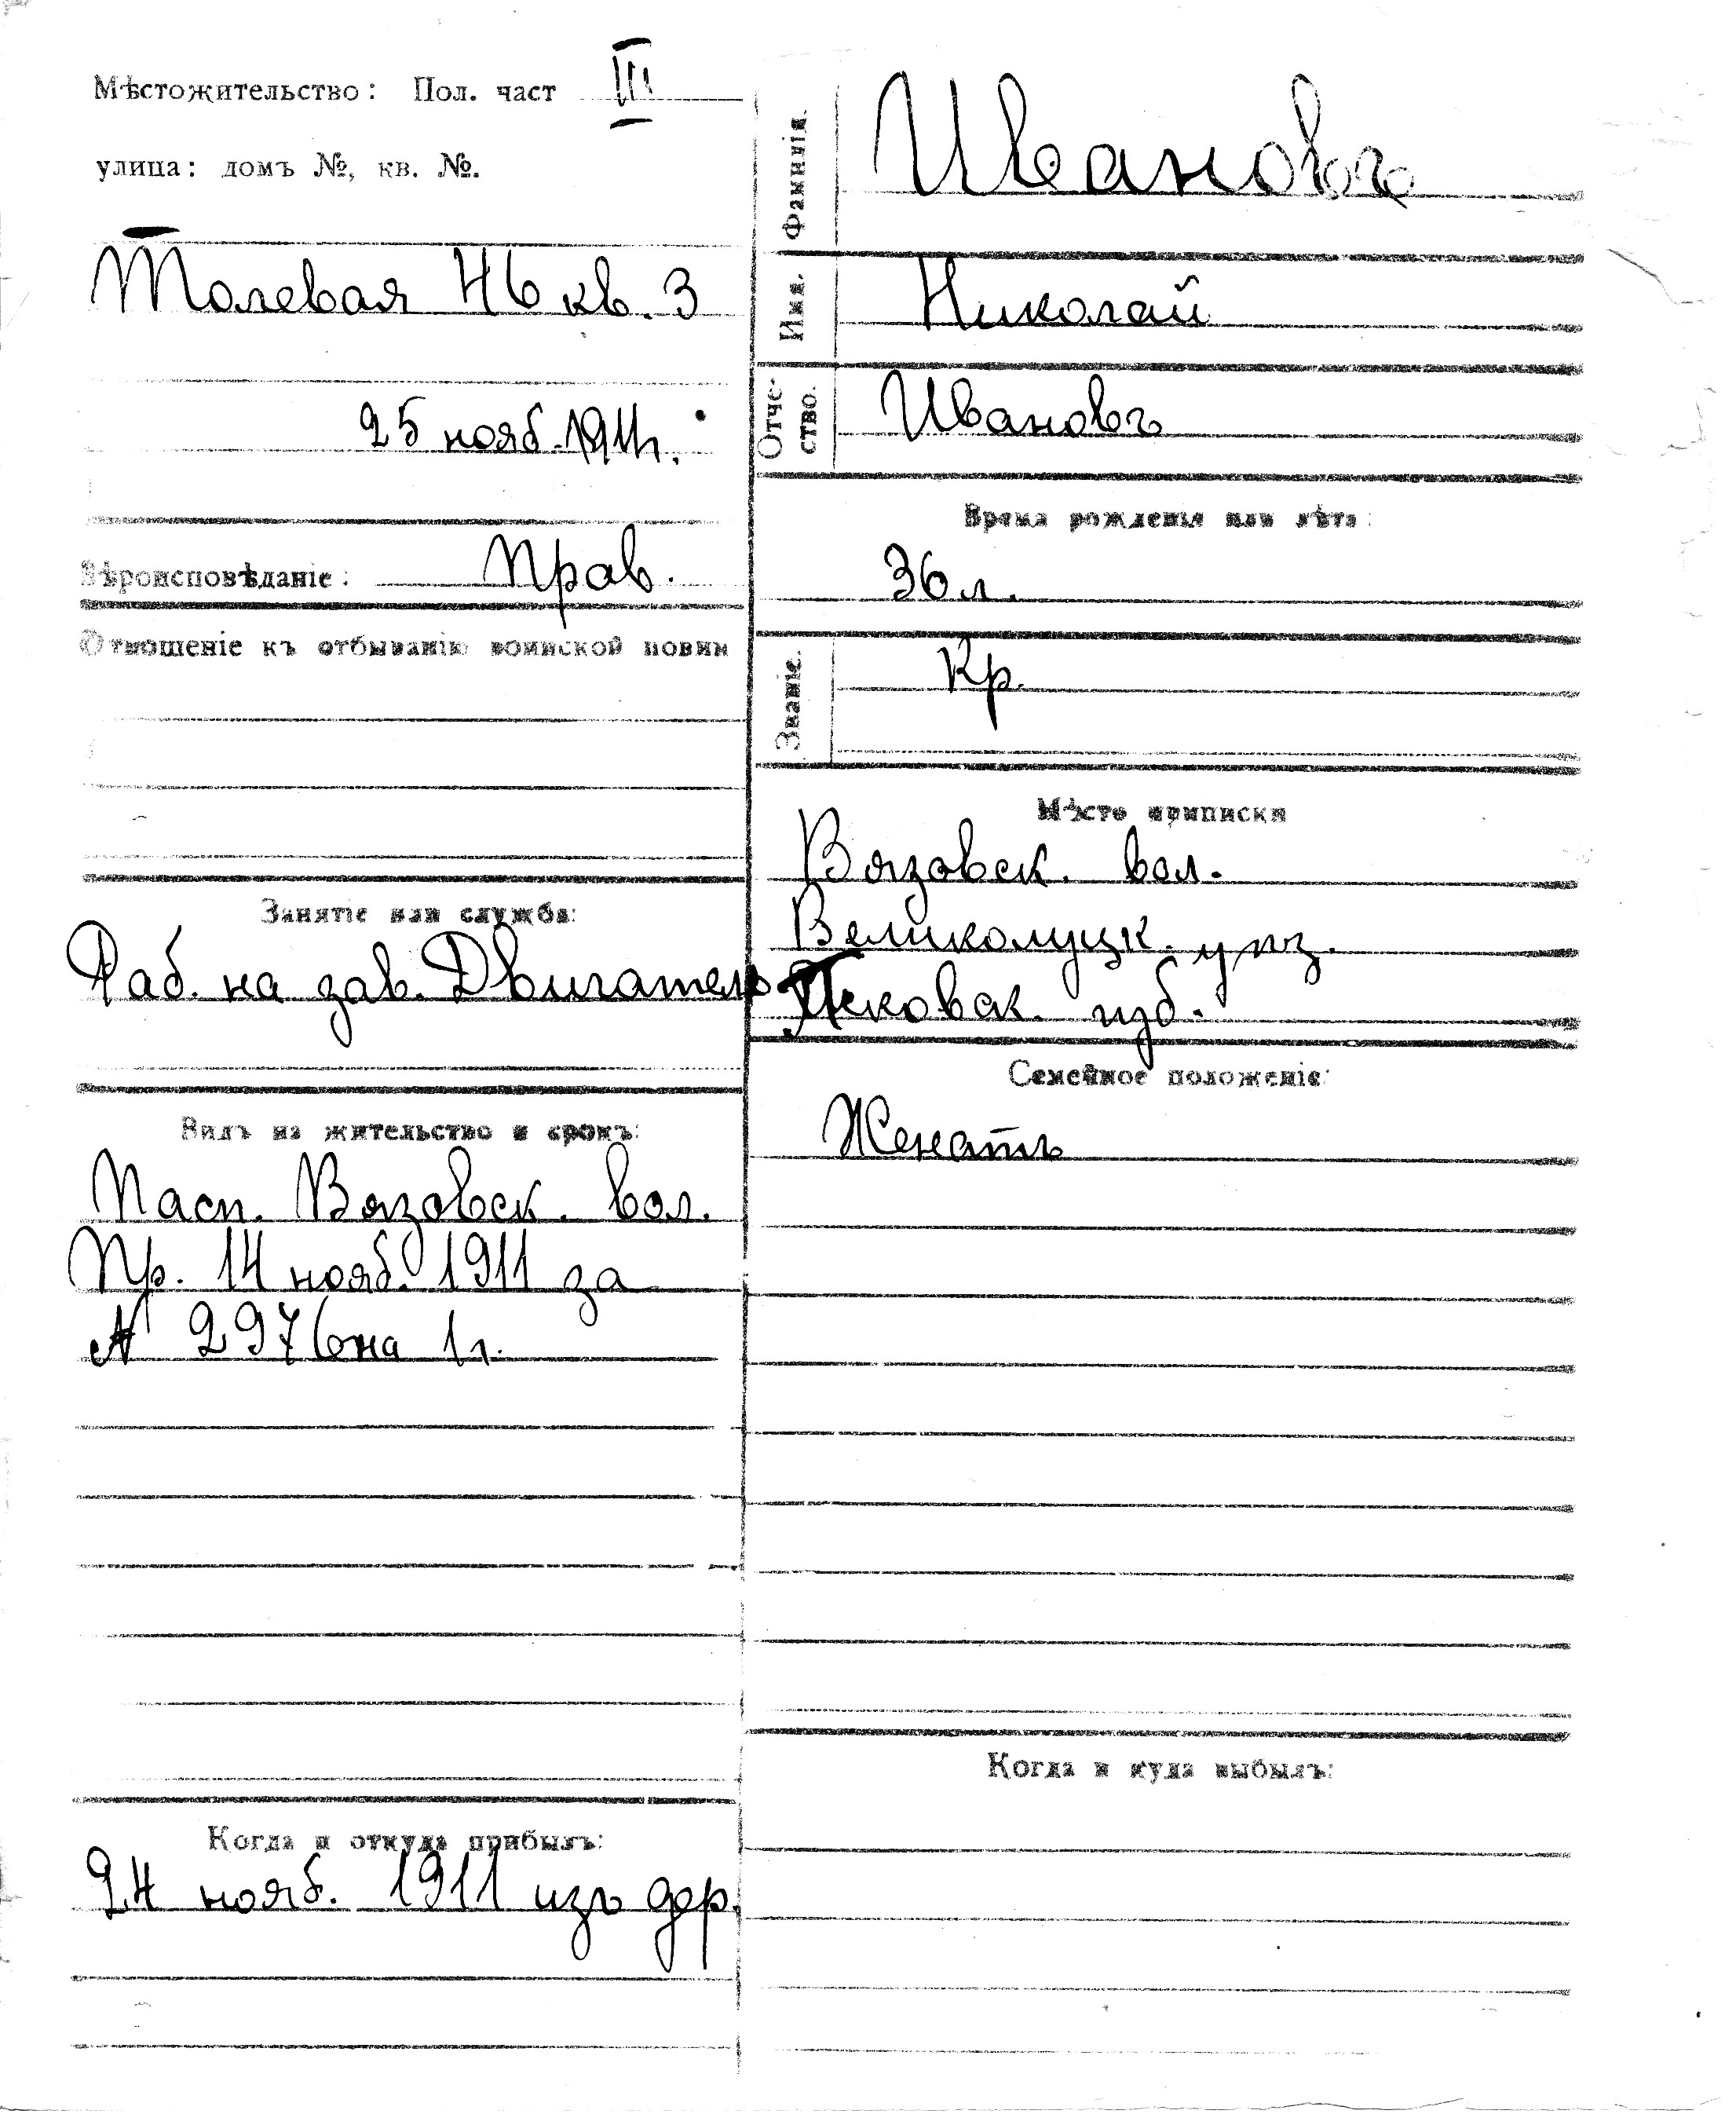 Мѣстожительство: Пол. част III
улица: домъ №, кв. №.
Полевая 46 кв. 3
25 нояб. 1911г.
Вѣроисповѣданіе: Прав.
Отношеніе къ отбыванію воинской повин
Занятіе или служба:
Раб. на зав. Двигатель
Видъ на жительство и срокъ:
Пасп. Вязовск. вол.
Пр. 14 нояб. 1911 за
№ 2976 на 1 г.
Когда и откуда прибылъ:
24 нояб. 1911 изъ дер.
Фамилія. Ивановъ
Имя. Николай
Отче-
ство. Ивановъ
Время рожденія или лѣта:
36 л.
Званіе. Кр.
Мѣсто приписки
Вязовск. вол.
Великолуцк. уѣз.
Псковск. губ.
Семейное положеніе:
Женатъ
Когда и куда выбылъ: